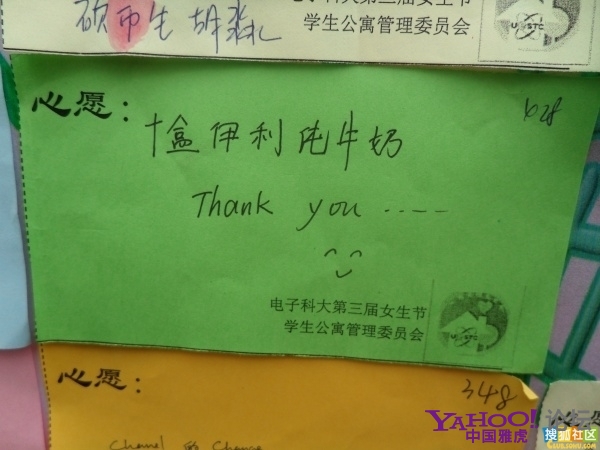 硕币生 胡
电子科大第三届女生节
学生公寓管理委员会
心愿：
628
十盒伊利纯牛奶
Thank you ·····
电子科大第三届女生节
学生公寓管理委员会
心愿：
348
Chanel 的 Chance
YAHOO!
中国雅虎
论坛
搜狐社区
CLUB.SOHU.COM